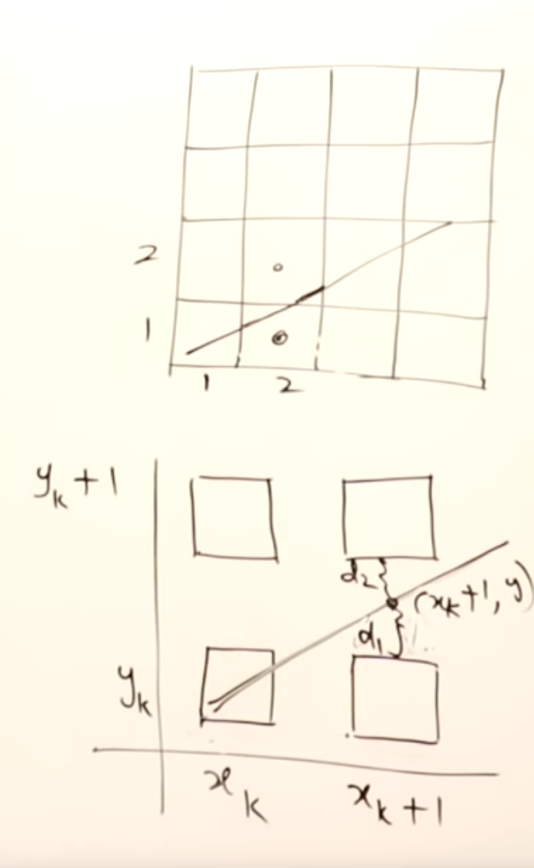 2
1
1 2
y_k + 1
d_2
(x_k+1, y)
d_1
y_k
x_k x_k+1